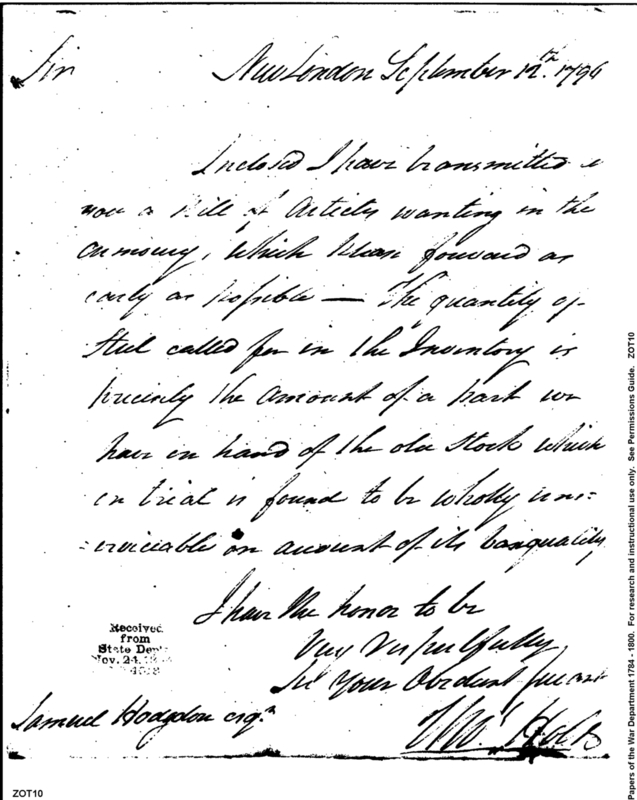 Sir New London September 12th. 1796
Inclosed I have transmitted
you a Bill of Articles wanting in the
armoury, which please forward as
early as possible — The quantity of
Steel called for in the Inventory is
precisely the amount of a part we
have in hand of the old Stock which
on trial is found to be wholly uns=
=erviceable on account of its bad quality
I have the honor to be
Very respectfully
Sir Your Obedient Servant
Samuel Hodgdon esqr.
Received
from
State Dept
Nov. 24,
ZOT10
Papers of the War Department 1784 - 1800. For research and instructional use only. See Permissions Guide. ZOT10